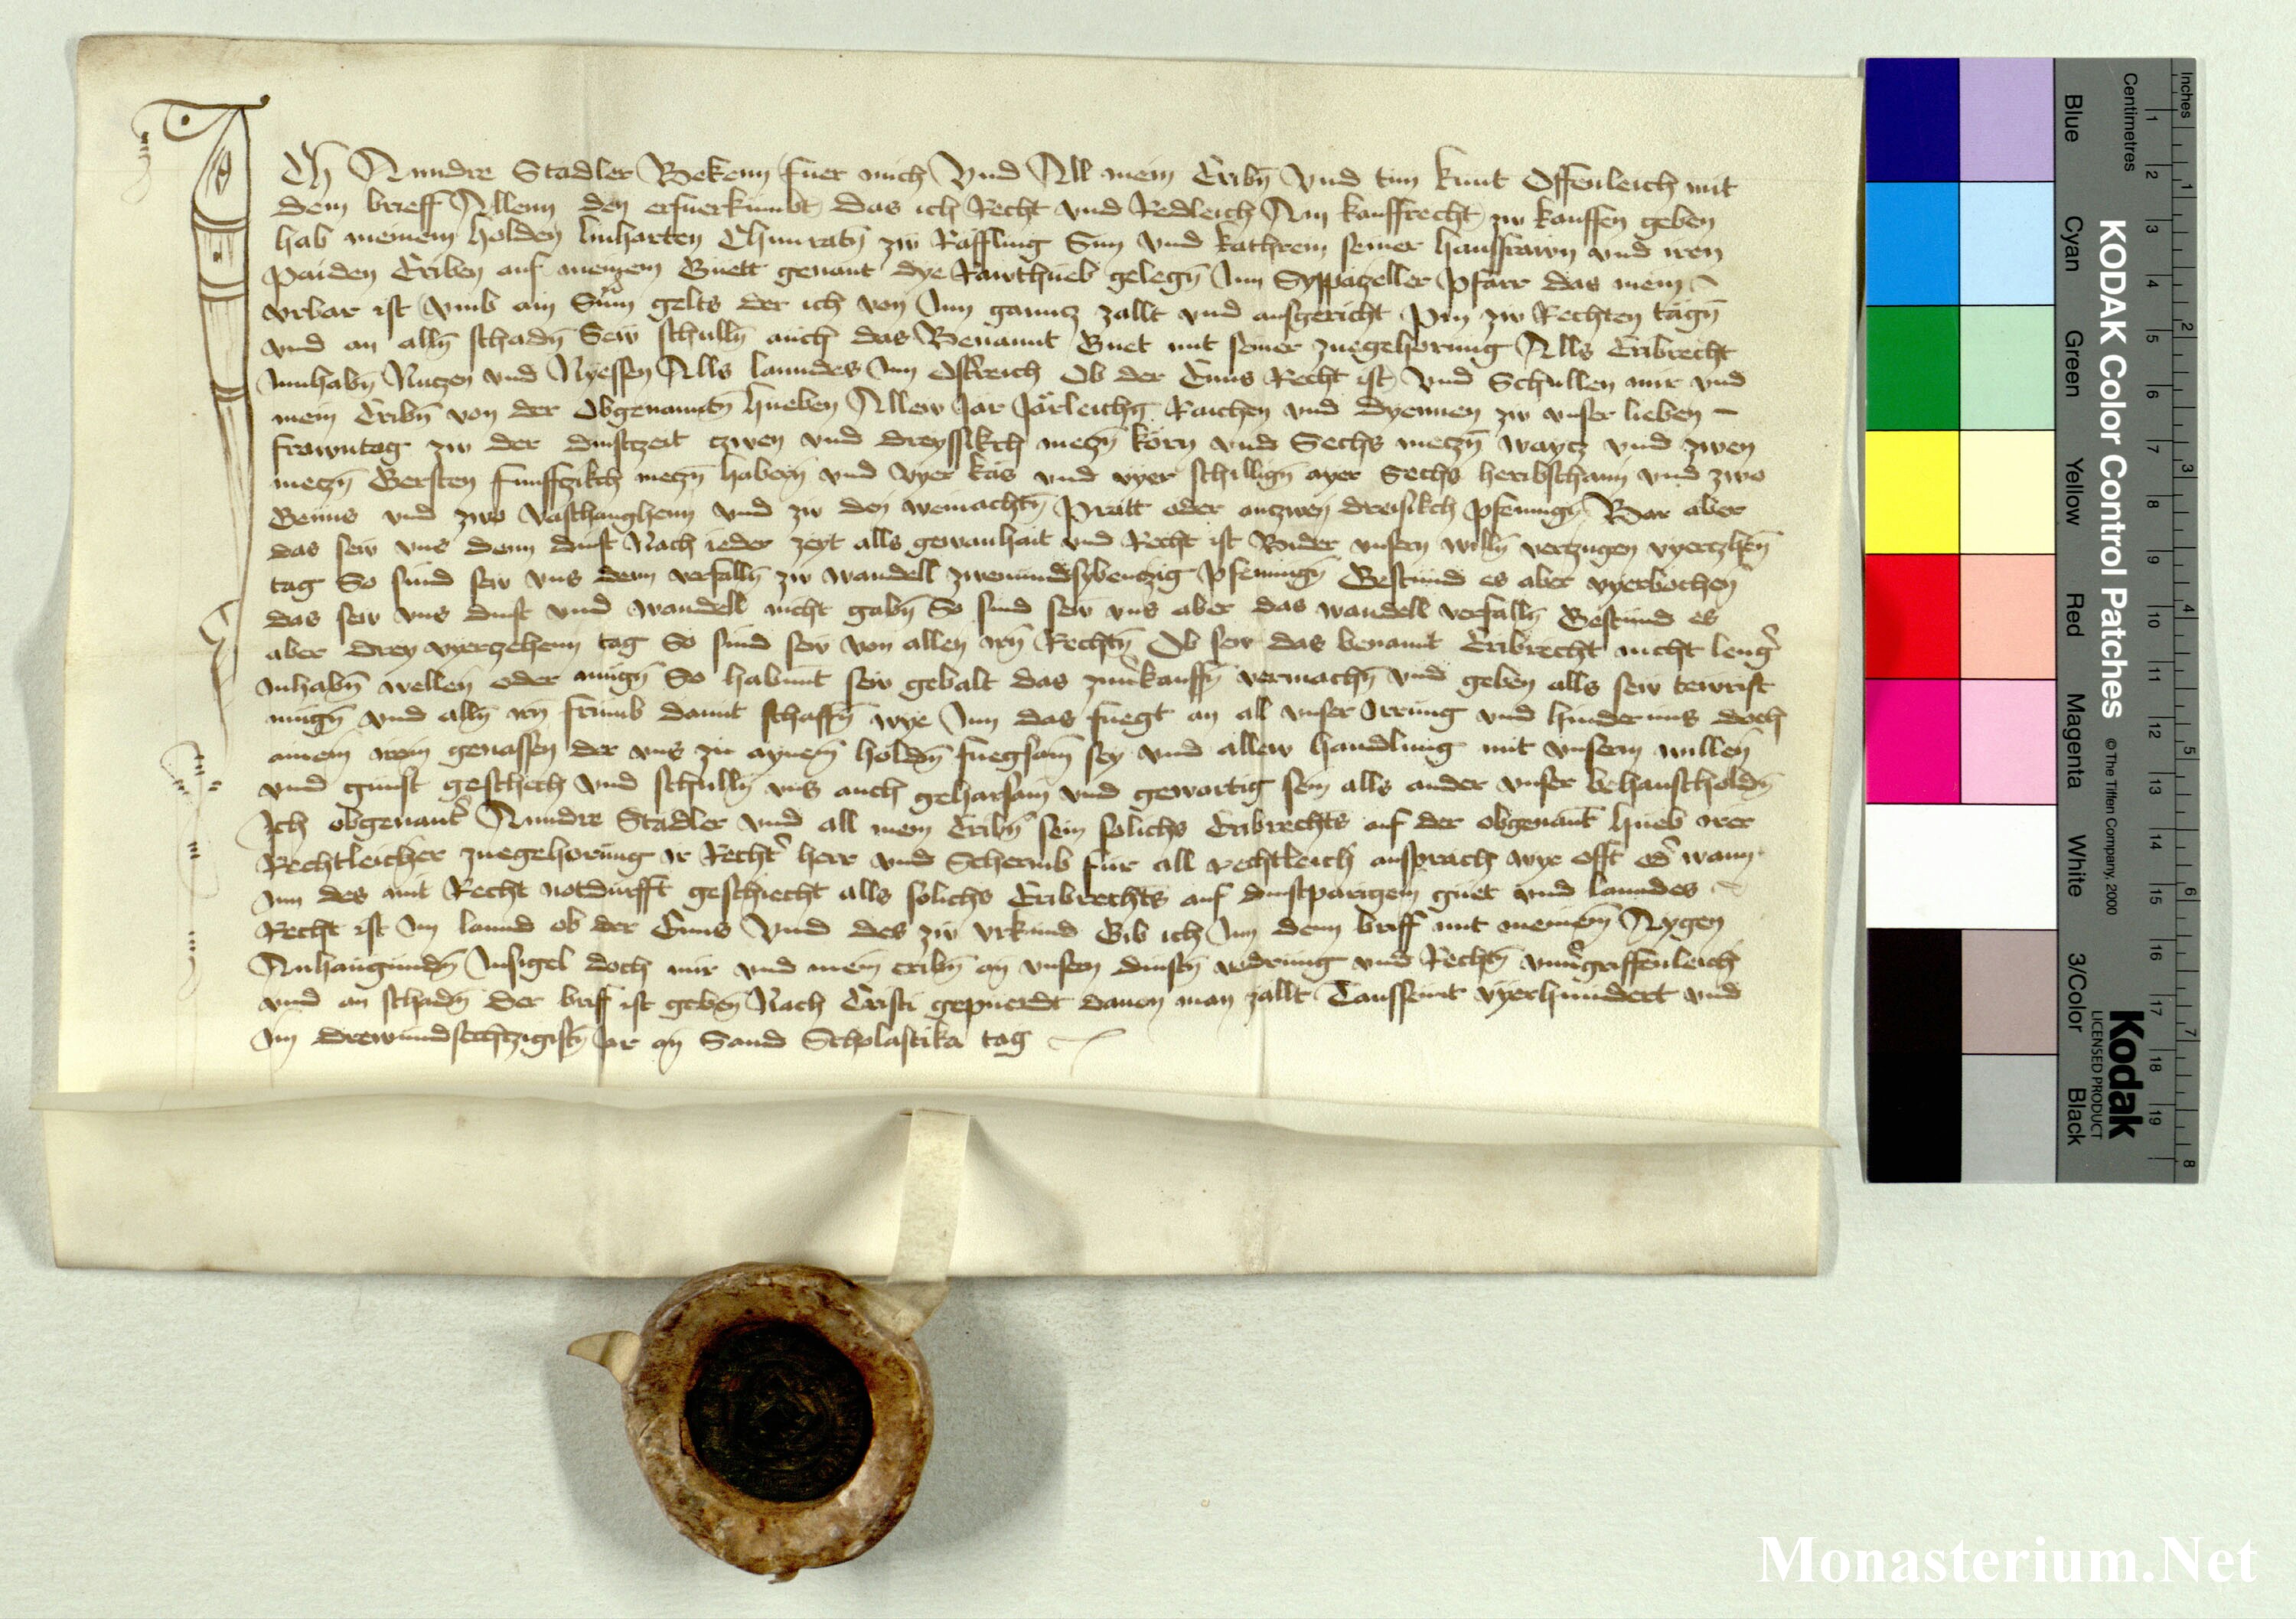 Ich Anndre Stadler Bekenn fuer mich Vnd All mein Eribn̄ Vnd tun kunt Offenleich mit
dem brieff Allenn den erfuerkumbt das ich Recht vnd Redleich Am kauffrecht zw kauffen geben
hab meinem holden linharten Chunratn̄ zw Räffling Sun vnd kathrein seiner hausfrawn vnd iren
paiden Eriben auf meinem Guett genant dye Rawthueb gelegn̄ Inn Syppatzeller pfarr das mein
vrbar ist vmb ain Sum gelts der ich von Inn ganntz zallt vnd ausgericht pin zw Rechten tägn̄
vnd an alln̄ schadn̄ Sew schulln̄ auch das Benannt Guet mit seiner zuegehorung Alls Eribrecht
Innhabn̄ Nutzen vnd Nyessen Alls lanndes Inn Ostreich Ob der Enns Recht ist Vnd Schullen mir vnd
mein Eribn̄ von der Obgenanntn̄ hueben Allew Jar Järleichg Raichen vnd dyennen zw vnser lieben
frawntag zw der dinstzeit czwen vnd dreyssikch meczn̄ korn vnd Sechs meczn̄ waytz vnd zwen
meczn̄ Gersten funffczikch meczn̄ habern vnd vyer käs vnd vyer schillign̄ ayer Sechs heribschann vnd zwo
Genns vnd zwo vaschanghenn vnd zw den weinachtn̄ pratt oder anzwen dreisikch pfenning War aber
das sew vns denn dinst Nach ieder zeyt alls gewanhait vnd Recht ist Wider vnsern willn̄ vertzugen vyertzhen̄
tag So sind sew vns dem verfalln̄ zw wandell zwenundsybenczig pfenning Bestund es aber vyerbochen
das sew vns dinst vnd wandell nicht gabn̄ So sind sew vns aber das wandell verfalln̄ Bestund es
aber drey vyerzehenn tag So sind sew von allen irn̄ Rechtn̄ Ob sew das benannt Eribrecht nicht leng̉
inhabn̄ wellen oder mugn̄ So habunt sew gebalt das zuuerkauffn̄ vermachn̄ vnd geben alls sew tewrist
mugn̄ vnd alln̄ irn̄ frumb damit schaffn̄ wye Inn das fuegt an al vnser Irrung vnd hindernus doch
ainem irem genassen der vns zu aynem holdn̄ fuegsam sey vnd allew handlung mit vnserm willen
vnd gunst geschech vnd schulln̄ vns auch geharsam vnd gewartig sein alls ander vnser behaustholdn̄
Ich obgenant̉ Anndre Stadler vnd all mein Eribn̄ sein solichs Eribrechts auf der obgenant̄ hueb irer
Rechtleicher zuegehorung ir Recht̉ herr vnd Schermb für all rechtleich ansprach wye offt od̉ wann
Inn des mit Recht notdurfft geschiecht alls solichs Eribrechts auf dinstparigem guet vnd lanndes
Recht ist Im lannd ob der Enns Vnd des zw vrkund Gib ich Inn denn briff mit meinem Aygen
Anhangundn̄ Insigel doch mir vnd mein eribn̄ an vnsern dinstn̄ vadrung vnd Rechtn̄ vnu̇griffenleich
vnd an schadn̄ Der briff ist geben̄ Nach Cristi gepuerdt dauon man zallt Taussennt vyerhundert vnd
Im drewundsechtzigistn̄ Jar an Sand Scholastika tag
KODAK Color Control Patches © The Tiffen Company, 2000
Kodak
LICENSED PRODUCT
Inches
Centimetres
Blue
Cyan
Green
Yellow
Red
Magenta
White
3/Color
Black
1 2 3 4 5 6 7 8 9 10 11 12 13 14 15 16 17 18 19
1 2 3 4 5 6 7 8
Monasterium.Net